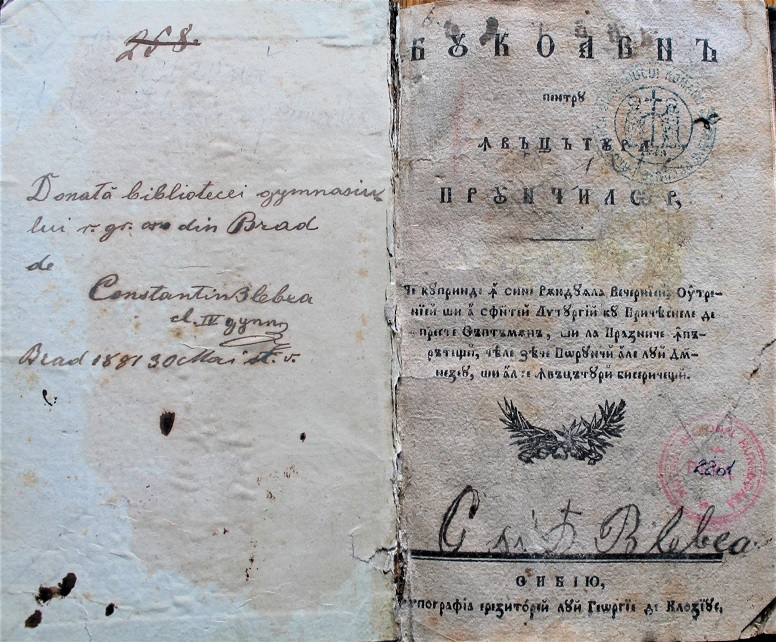 268.
Donată bibliotecei gymnasiu
lui r. gr. or. din Brad
de
Constantin Blebea
cl. IV gymn
Brad 1881 30 Mai st. v.
БꙋКОАВНЪ
пентрꙋ
ꙟвъцътꙋра
ПРꙋНЧИЛѠР,
Че кꙋпринде ꙟ сине Рѫндꙋѧла Вечернїеи, Оу҆тре-
нїей ши а сфи́тей Лїтꙋргїй кꙋ Причѣснеле де
песте Съптъмѫнъ, ши ла Празниче ꙟпъ-
рътещй, челе зѣче Порꙋнчй але лꙋй Дꙋм-
незеꙋ, ши алте ꙟвъцътꙋрй бисеричещй.
2201
G Blebea
СИБІЮ,
Типографїа ерезиторѐй лꙋй Геѡргїе де Клозїꙋс,